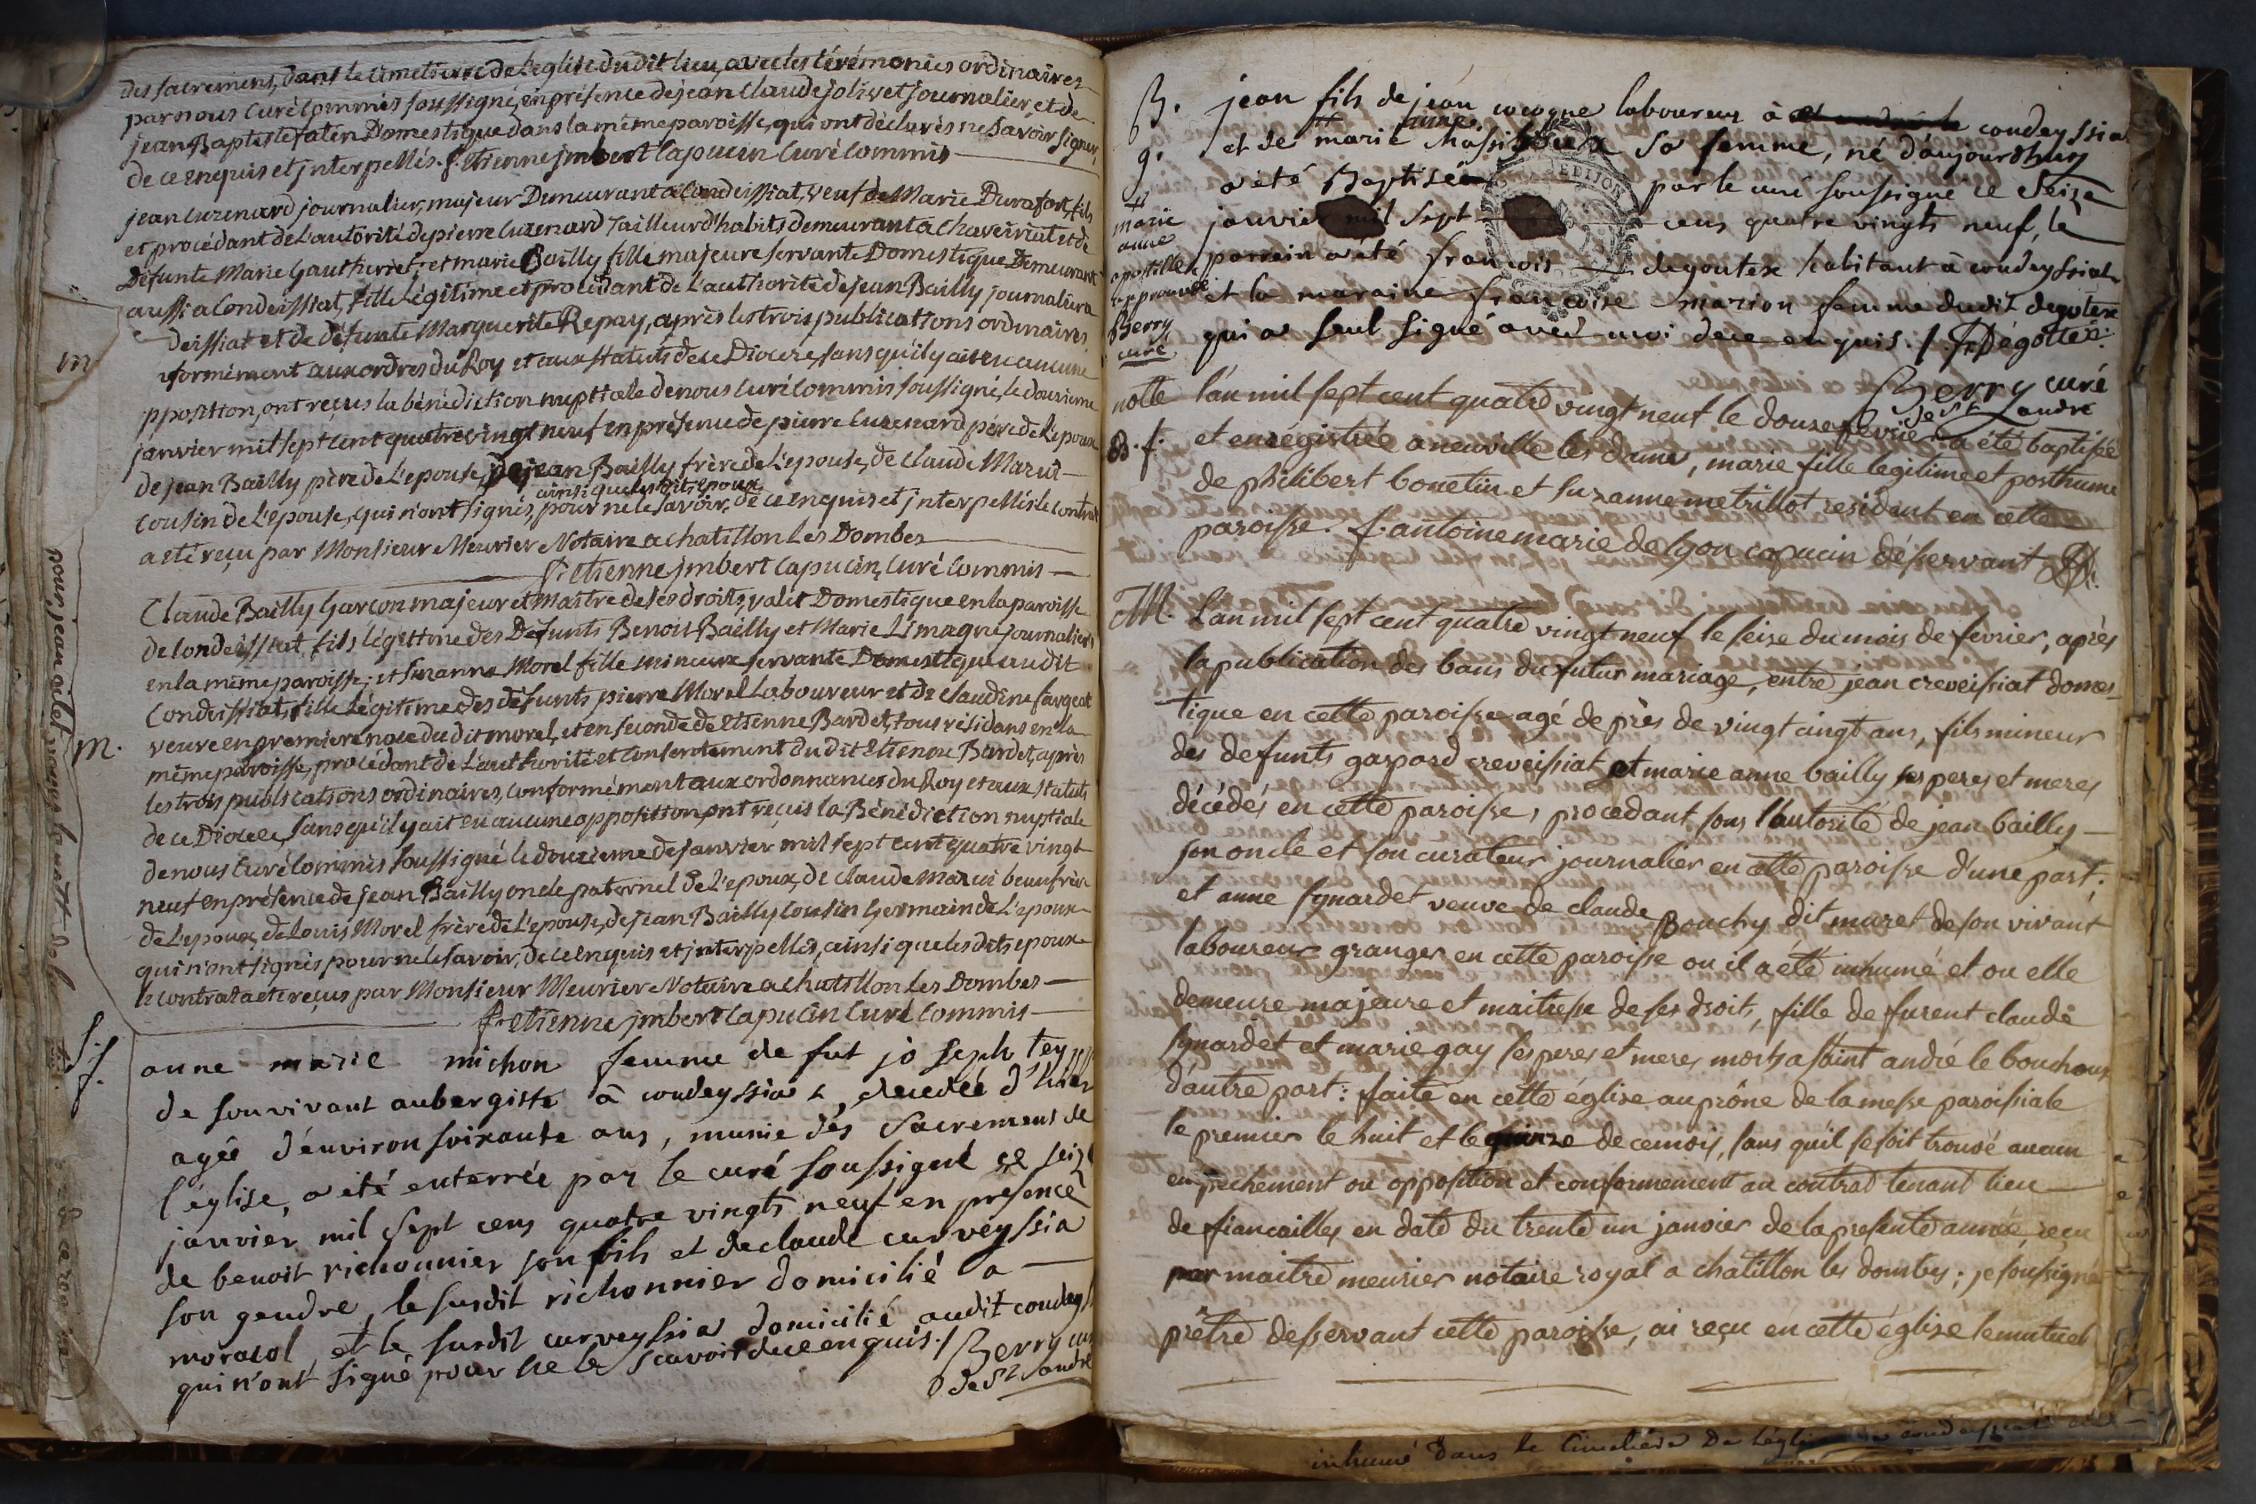 des sacremens, dans le cimetierre de L'eglise dudit lieu, avec les cérémonies ordinaires
par nous Curé Commis soussigné, en présence de jean Claude jolivet journalier et de
jean Baptiste Domestique dans la même paroisse, qui ont déclarés ne savoir signer,
de ce enquis et jnterpellés. f. Etienne jmbert Capucin Curé Commis
jean Curenard journalier, majeur Demeurant a Condeissiat, veuf de Marie Durafort, fils
et procédant de L'autorité de pierre Curenard Tailleur d'habits demeurant a Chaveiriat et de
Défunte Marie Gautherret; et marie Bailly fille majeure servante Domestique Demeurant
aussi a Condeissiat, fille Légitime et procédant de L'authorité de jean Bailly journalier a
deissiat et de défunte Marguerite Repay, après les trois publications ordinaires
formément aux ordres du Roy et aux statuts de ce Diocèse, sans qu'il y ait eu aucune
pposition, ont reçus la bénédiction nuptiale de nous Curé Commis soussigné, le douzieme
janvier mil sept cent quatre vingt neuf en présence de pierre Curenard père de L'epoux
de jean Bailly père de L'epouse, de jean Bailly frère de L'epouse, de Claude Marui
ainsi que les dits epoux
Cousin de L'epouse, qui n'ont signés, pour ne le savoir, de ce enquis et jnterpellés le contrat
a eté reçu par Monsieur Meurier Notaire a chatillon Les Dombes
f. Etienne jmbert Capucin, Curé Commis
m.
Claude Bailly Garçon majeur et Maitre de ses droits, valet Domestique en la paroisse
de Condeissiat, fils légitime des Défunts Benoit Bailly et Marie Limagne journaliers
en la même paroisse; et suzanne Morel fille mineure servante Domestique audit
Condeissiat, fille Légitime des défunts pierre Morel Laboureur et de Claudine fargeat
veuve en premiere noce du dit morel, et en seconde de Etienne Bardet, tous résidans en la
même paroisse, procédant de L'authorité et Consentement du dit Etienne Bardet, après
les trois publications ordinaires, conformément aux ordonnances du Roy et aux statuts
de ce Diocèse, sans qu'il y ait eu aucune opposition, ont reçus la Bénédiction nuptiale
de nous Curé Commis soussigné le douzieme de janvier mil sept cent quatre vingt
neuf en présence de jean Bailly oncle paternel de L'epoux, de Claude Marui beaufrère
de L'epoux, de Louis Morel frère de L'epouse, de jean Bailly Cousin Germain de L'epoux
qui n'ont signés pour ne le savoir, de ce enquis et jnterpellés, ainsi que les dits epoux
le contrat a été reçus par Monsieur Meurier Notaire a chatillon Les Dombes
f. Etienne jmbert Capucin Curé Commis
m.
S.
f.
anne marie michon femme de fut joseph
de son vivant aubergiste à condeyssiat, décédée d'hier
agée d'environ soixante ans, munie des Sacremens de
l'église, a été enterrée par le curé soussigné ce seize
janvier mil sept cens quatre vingts neuf, en présence
de benoit richonnier son fils et de claude curveyssia
son gendre, le susdit richonnier domicilié a
et le susdit curveyssia domicilié audit
qui n'ont signé pour ne le scavoir de ce enquis./ Berry curé
de St andré
B.
g.
jean fils de jean cocogne laboureur à condeyssia
anne
et de marie sa femme, né d'aujourdhuy
a été Baptisé par le curé soussigné ce Seize
janvier mil Sept cens quatre vingts neuf, le
parrein a été francois degoutex habitant à condeyssiat
et la maraine francoise marion femme dudit degotex
qui a seul signé avec moi de ce enquis./. Dégottex
marie
anne
apostille
approuvée
Berry
curé
Berry curé
de St andré
notte
B. f.
l'an mil sept cent quatre vingt neuf le douze fevrier a été baptisée
et enrégistrée a neuville les dames, marie fille legitime et posthume
de philibert bonetin et suzanne metrillot residant en cette
paroisse. f. antoine marie de lyon capucin déservant
M.
L'an mil sept cent quatre vingt neuf le seize du mois de fevrier, après
la publication des bans du futur mariage, entre jean creveissiat domes-
tique en cette paroisse agé de près de vingt cinqt ans, fils mineur
des defunts gaspard creveissiat et marie anne bailly ses peres et meres
décédés en cette paroisse, procedant sous l'autorité de jean bailly
son oncle et son curateur journalier en cette paroisse d'une part;
et anne synardet veuve de claude Bouchy dit muret de son vivant
laboureur granger en cette paroisse ou il a été inhumé et ou elle
demeure majeure et maitresse de ses droits, fille de furent claude
synardet et marie gay ses peres et meres morts a saint andré le bouchoux
d'autre part: faite en cette église au prône de la messe paroissiale
le premier le huit et le quinze de ce mois, sans qu'il se soit trouvé aucun
empechement ou opposition et conformement au contrat tenant lieu
de fiancailles en date du trente un janvier de la presente année, reçu
par maitre meurier notaire royal a chatillon les dombes; je soussigné
prêtre desservant cette paroisse, ai reçu en cette église le mutuel
inhumé dans le Cimetière De l'église